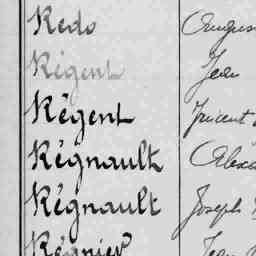 Redo Augus
Régent Jean
Régent Vincent
Régnault Alexa
Régnault Joseph
Régnier Jean